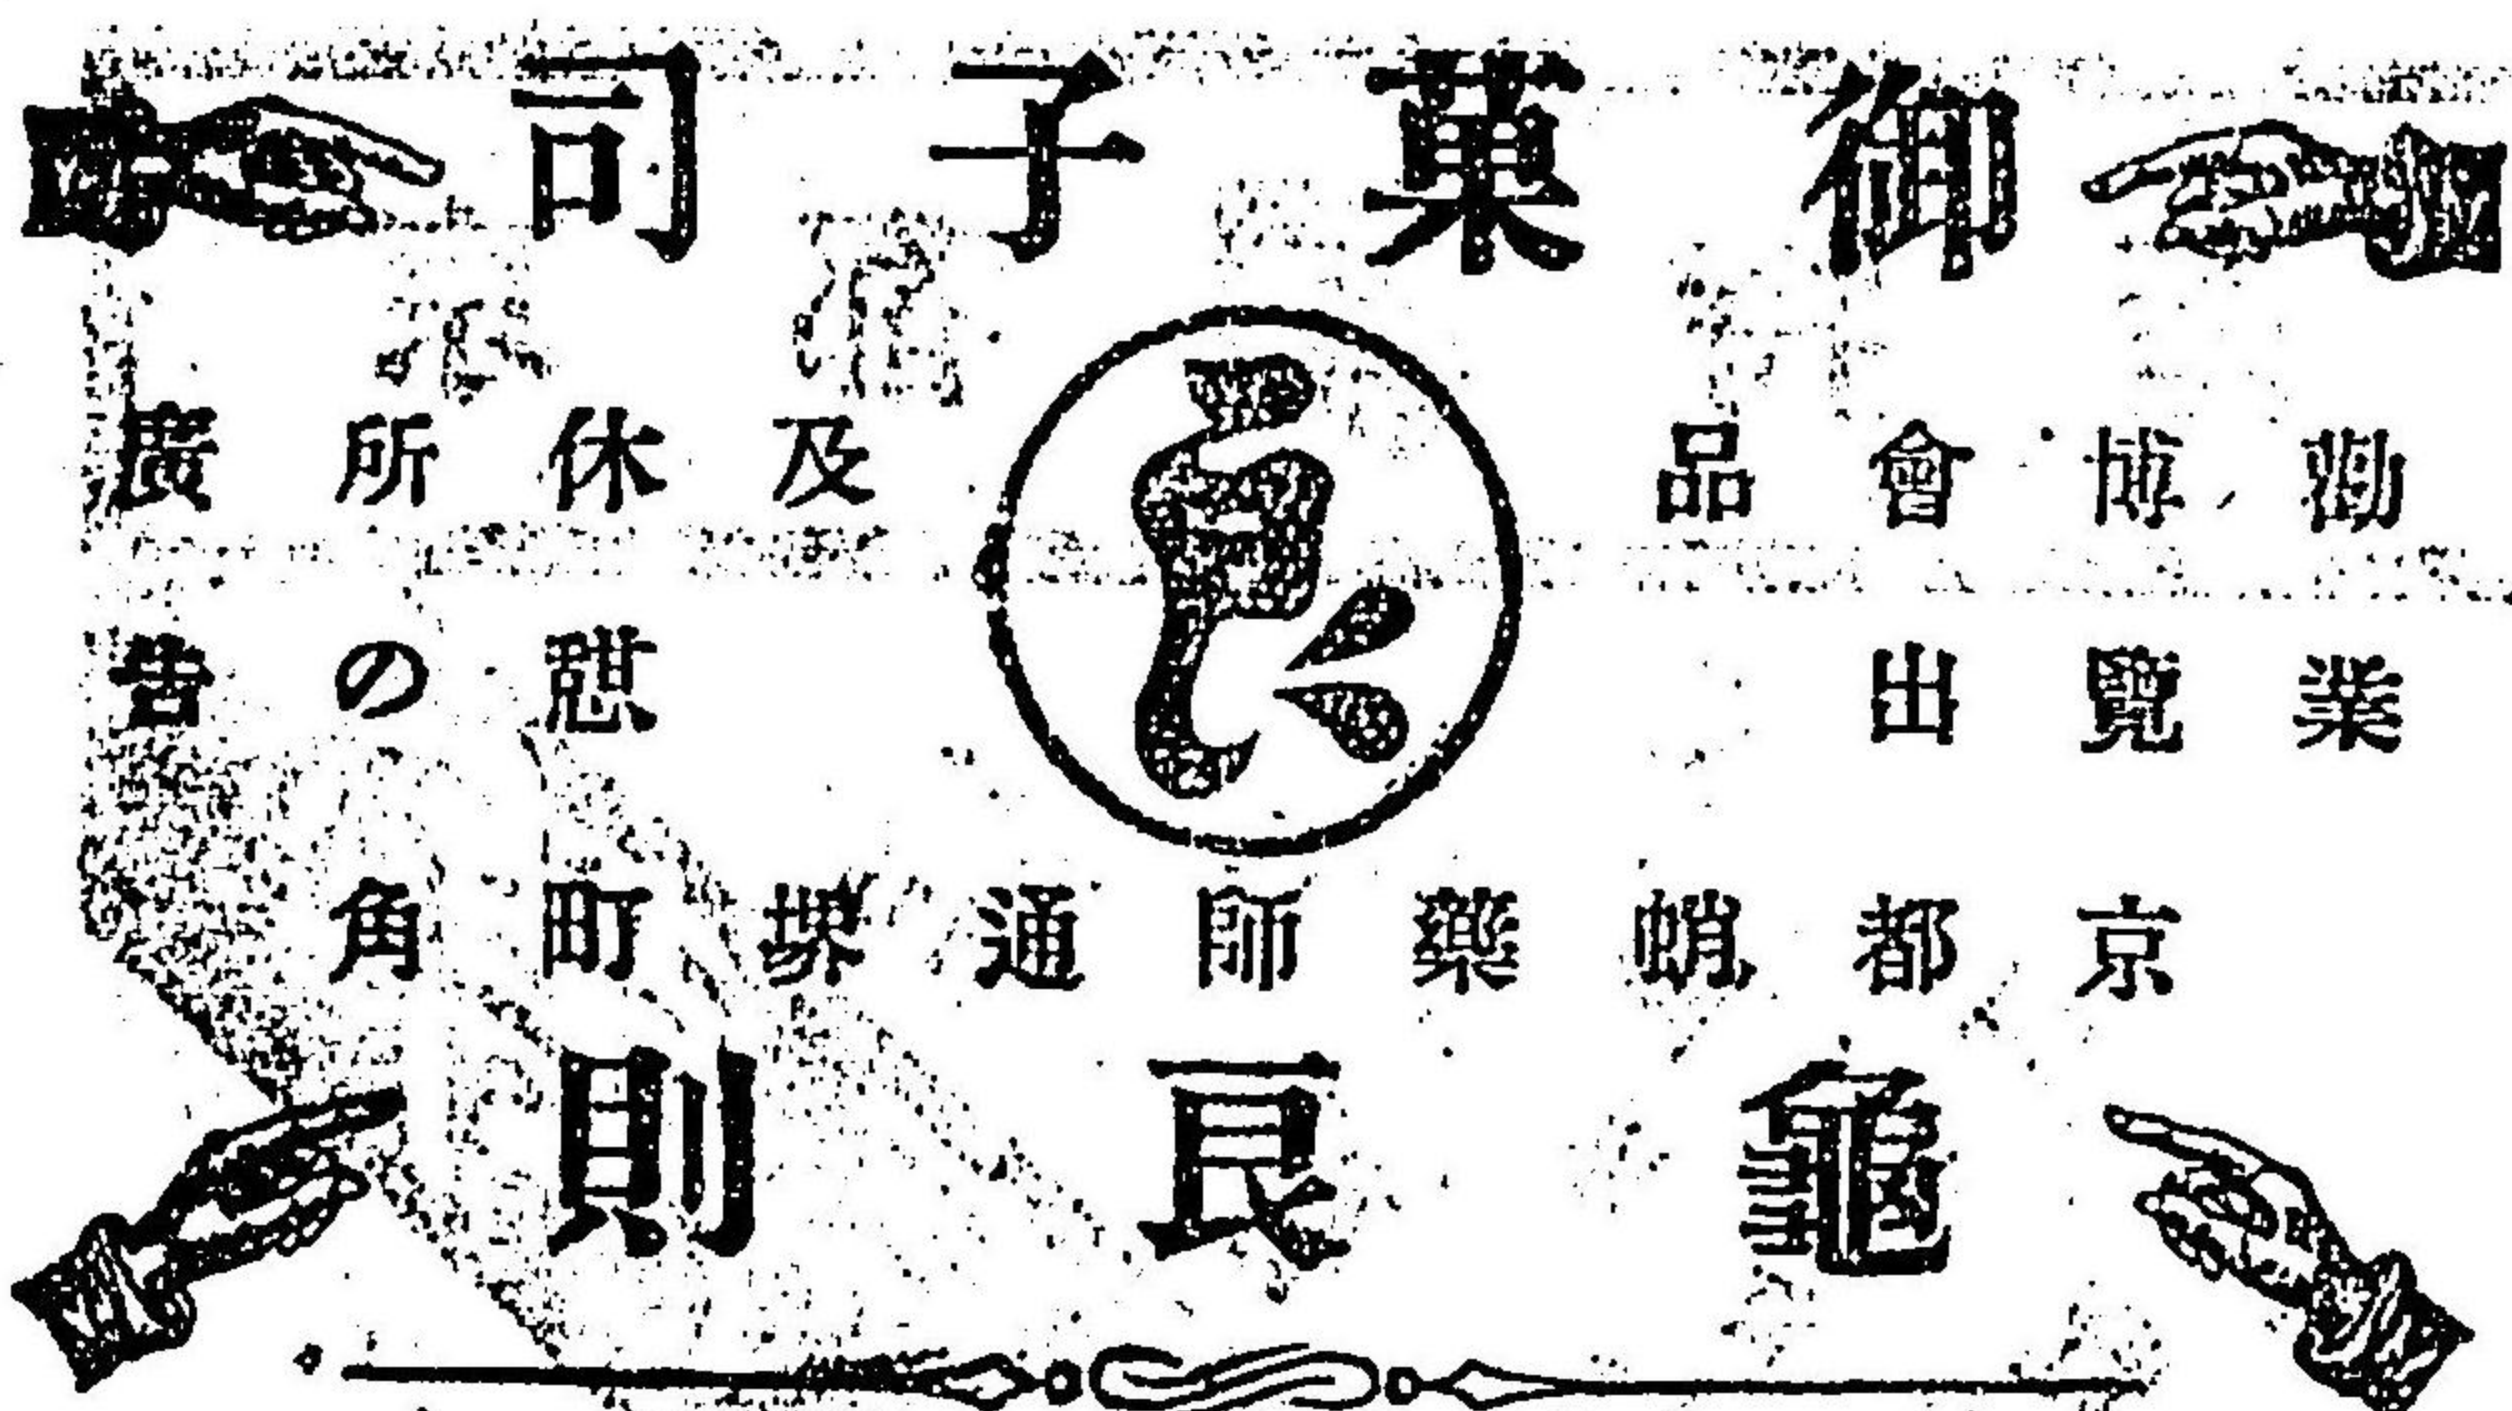 御菓子司
勸業博覽會出品
及休憩所の廣告
京都蛸藥師通堺町角
龜良則